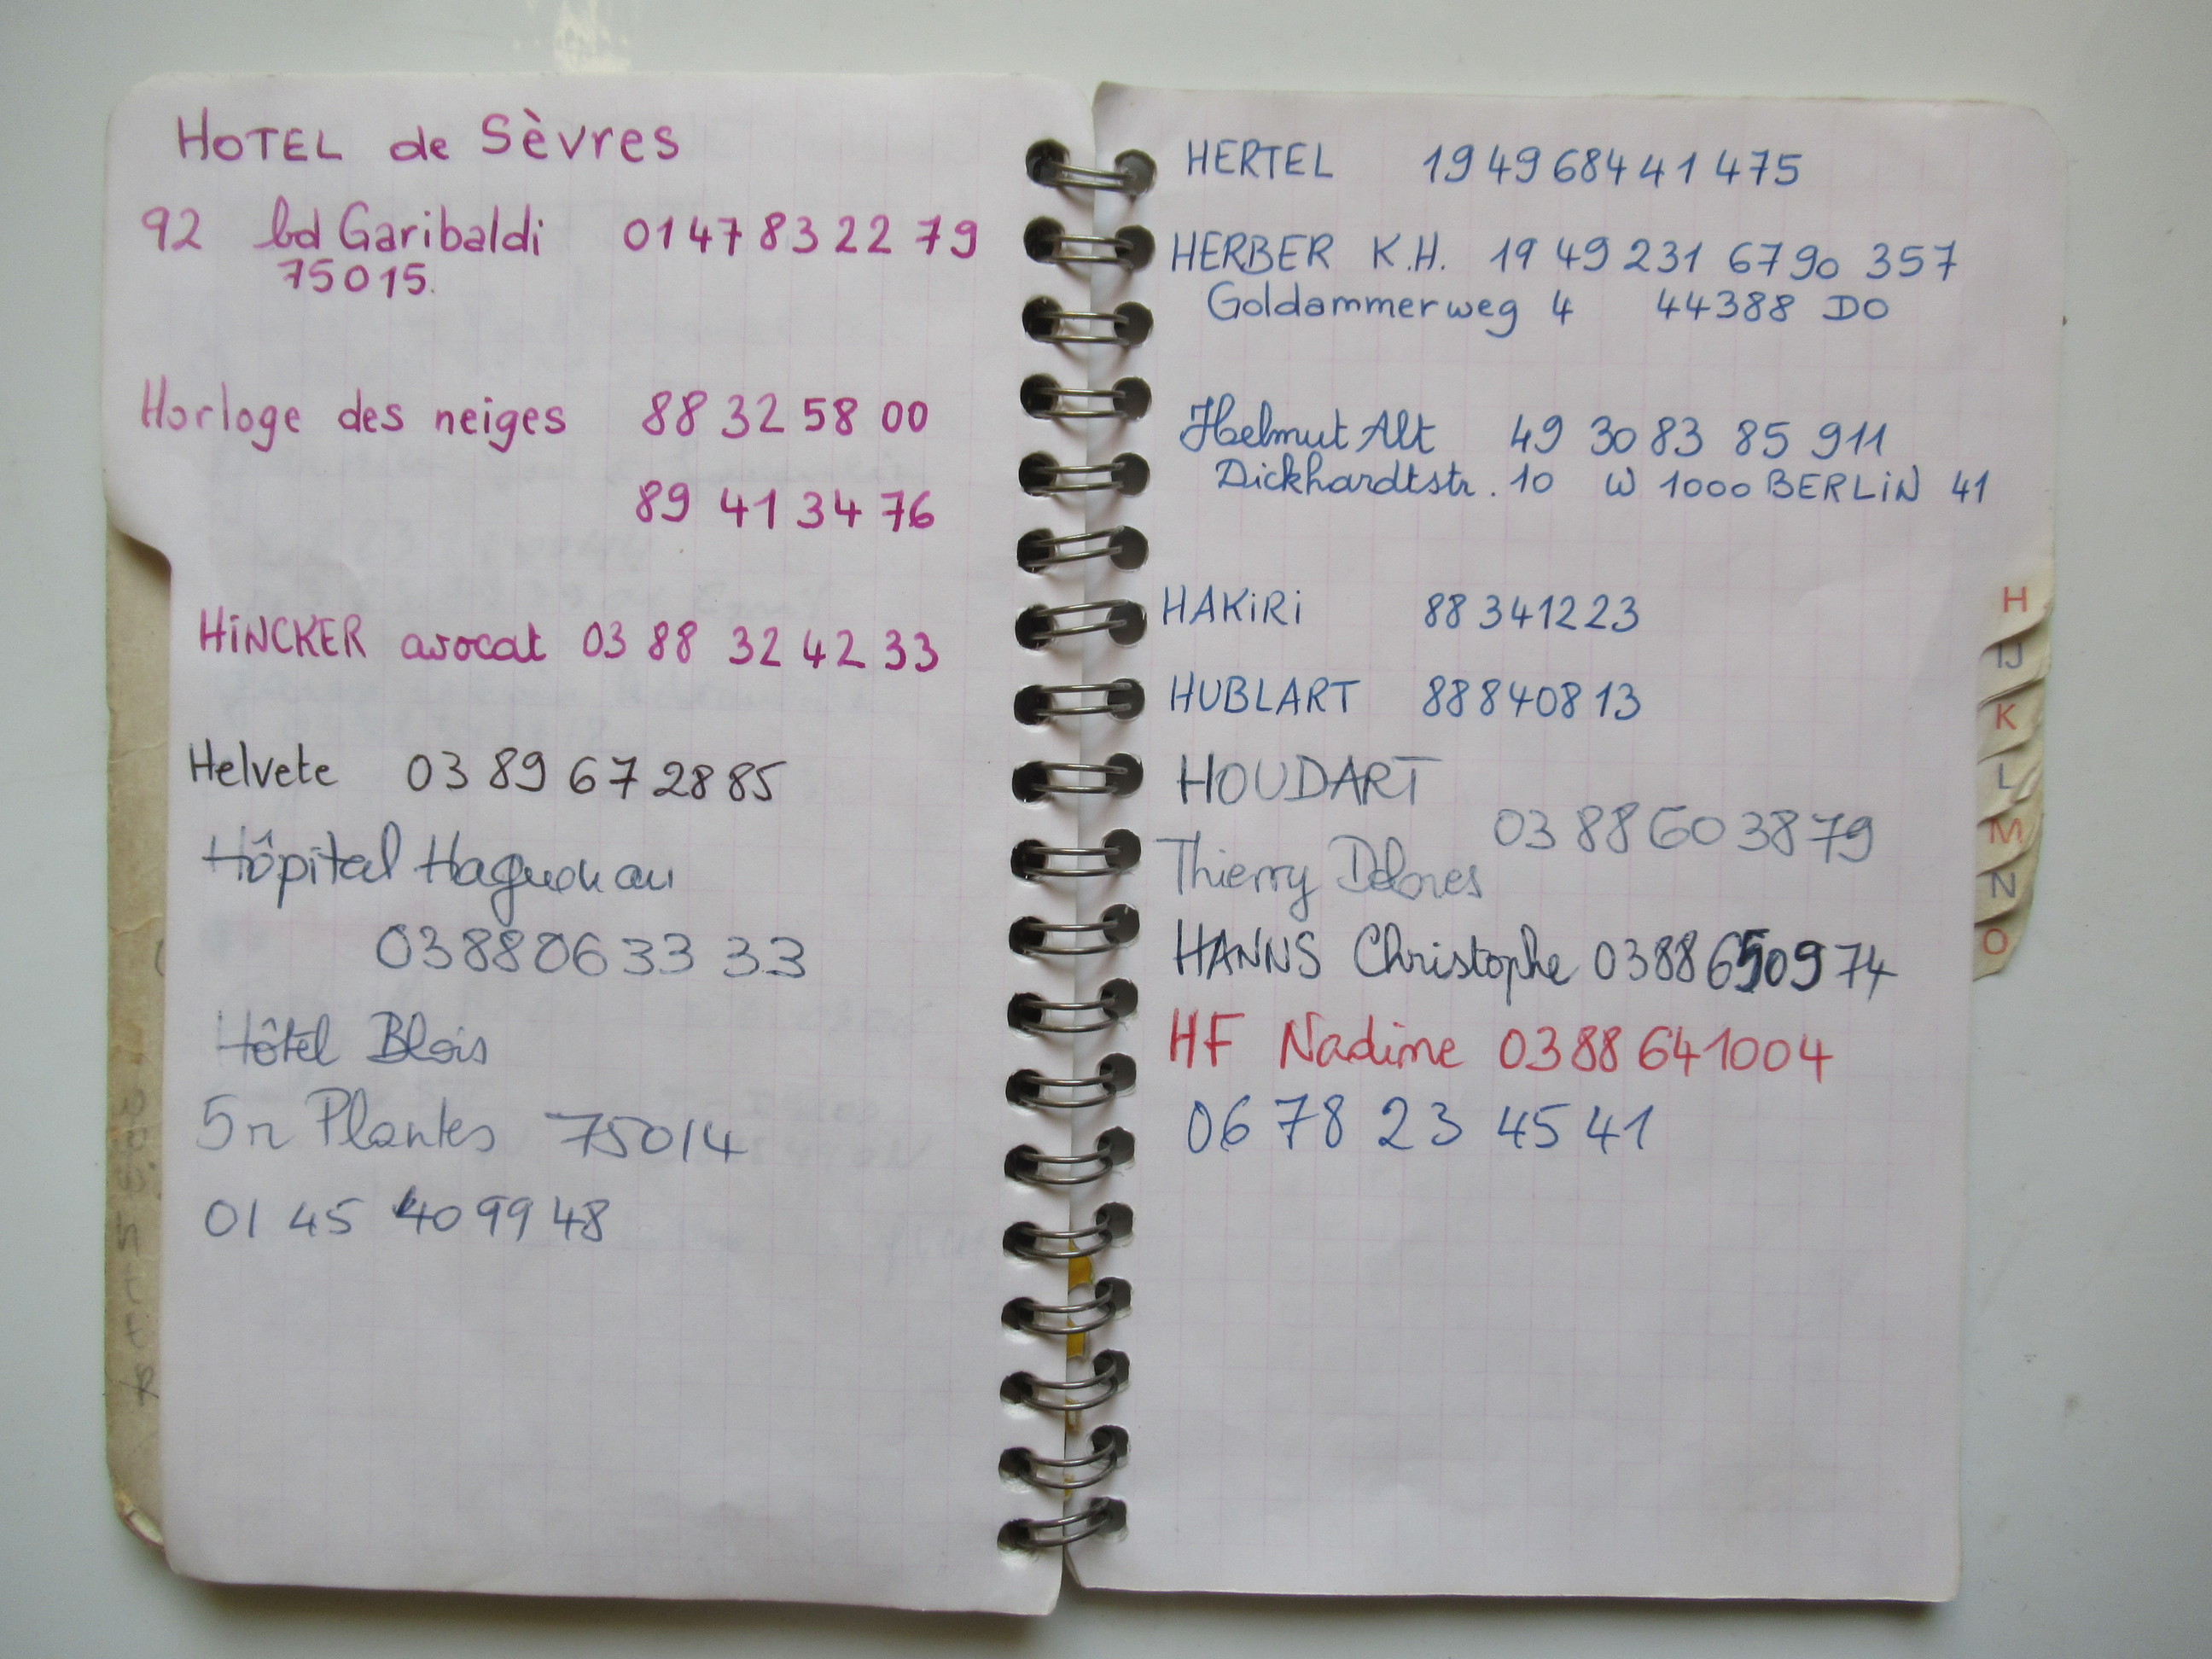 HOTEL de Sèvres
92 bd Garibaldi 01 47 83 22 79
75015.
Horloge des neiges 88 32 58 00
89 41 34 76
HiNCKER avocat 03 88 32 42 33
Helvete 03 89 67 28 85
Hôpital Haguenau
03 88 06 33 33
Hôtel Blois
5 r Plantes 75014
01 45 40 99 48
HERTEL 19 49 68 44 1 475
HERBER K.H. 19 49 231 6790 357
Goldammerweg 4 44388 DO
Helmut Alt 49 30 83 85 911
Dickhardtstr. 10 W 1000 BERLiN 41
HAKiRi 88 34 12 23
HUBLART 88 84 08 13
HOUDART
03 88 60 38 79
Thierry Dolores
HANNS Christophe 03 88 65 09 74
HF Nadine 03 88 64 10 04
06 78 23 45 41
H
IJ
K
L
M
N
O